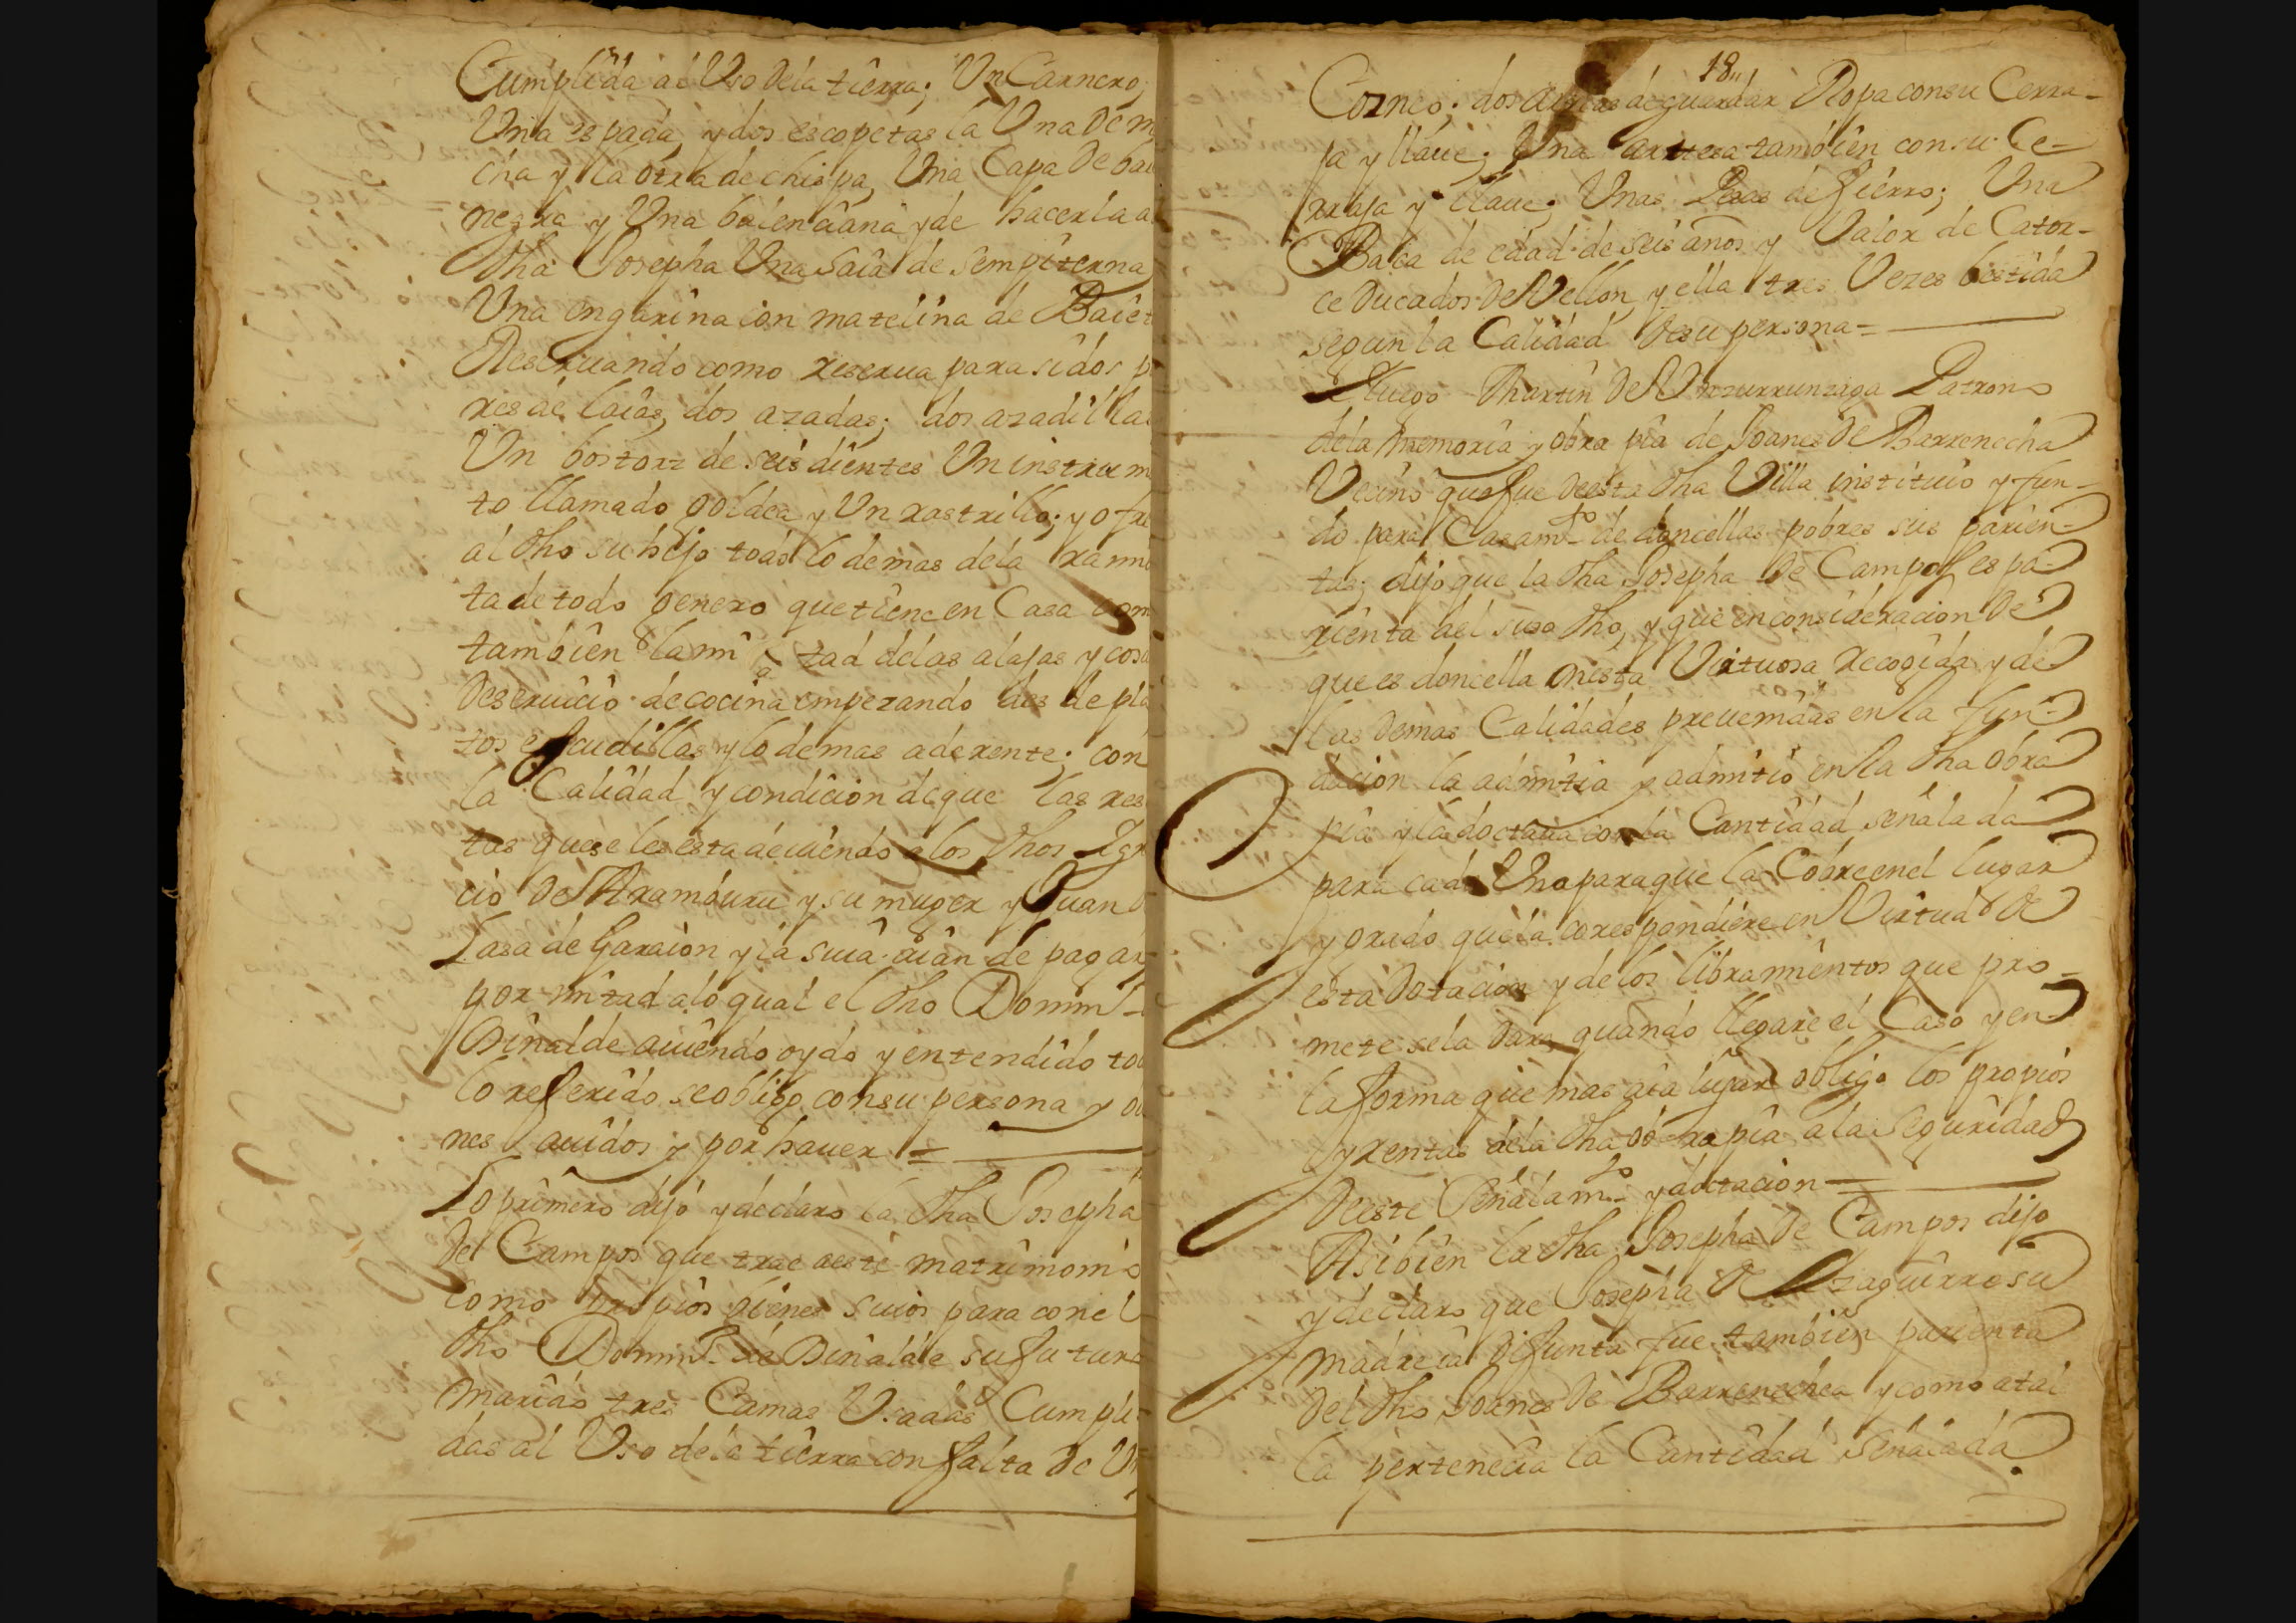 Cumplida al Vso dela tierra; Vn Carnero,
Vna espada, y dos escopetas la Vna de m
cha y la otra de chispa, Vna Capa de bai
negra y Vna balenciana y de hacerla a
dha Josepha Vna saia de sempiterna
Vna ungarina con matelina de Baiet
Reseruando como reserua para si dos p
res de laias, dos azadas; dos azadillas
Vn bostortz de seis dientes Vn instrum
to llamado goldea y Vn rastrillo; y ofre
al dho su hijo todo lo demas dela
ta de todo genero que tiene en Casa com
tambien la mi tad delas alajas y cosa
de seruicio de cocina empezando des de pla
tos escudillas y lo demas aderente; con
la Calidad y condicion de que las res
tas que se les esta deuiendo a los dhos Ign
cio de Aramburu y su muger y Juan
Lasa de Garaion y la suia aian de pagar
por mitad alo qual el dho Domin
Binalde auiendo oydo y entendido to
lo referido se obligo con su persona y
nes auidos y por hauer =
Lo primero dijo y declaro la dha Josepha
del Campos que trae a este matrimonio
Como propios bienes suios para con el
dho Domin de Binalde su futuro
marido tres Camas Vsadas Cumpli
das al Vso dela tierra con falta de Vn
18
Corneo; dos arcas de guardar Ropa con su Cerra-
ja y llaue; Vna artesa tambien con su Ce-
rraja y llaue; Vnas Pesas de fierro; Vna
Baca de edad de seis anos y Valor de Cator-
ce Ducados de Vellon, y ella tres Vezes bestida
segun la Calidad de su persona =
Luego Martin de Vnzurrunzaga Patron
dela memoria y obra pia de Joanes de Barrenechea
Vecino que fue deesta dha Villa instituio y fun-
do para Casamto de doncellas pobres sus parien-
tas; dijo que la dha Josepha de Campos es pa-
rienta del suso dho, y que en consideracion de
que es doncella onesta Virtuosa Recogida y de
las demas Calidades preuenidas en la fun-
dacion la admitia y admitio en la dha obra
pia y la doctaua con la Cantidad señalada
para cada Vna para que la Cobre en el lugar
y grado que la corespondiere en Virtud de
esta Dotacion y de los libramientos que pro-
mete se la dara quando llegare el Caso y en
la forma que mas aia lugar obligo los propios
y rentas dela dha obra pia a la seguridad
deeste Señalamto y dotacion =
Asibien la dha Josepha de Campos dijo
y declaro que Josepha de Yzaguirre su
madre ia difunta fue tambien parienta
del dho Joanes de Barrenechea y como atal
la pertenecia la Cantidad señalada